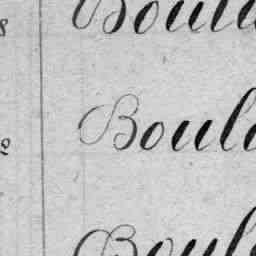 Boul
Boul
Boul